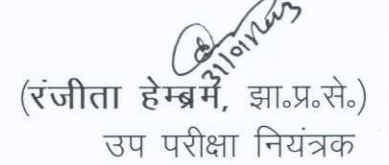 31/01/2023
(रंजीता हेम्ब्रम, झा०प्र०से०)
उप परीक्षा नियंत्रक